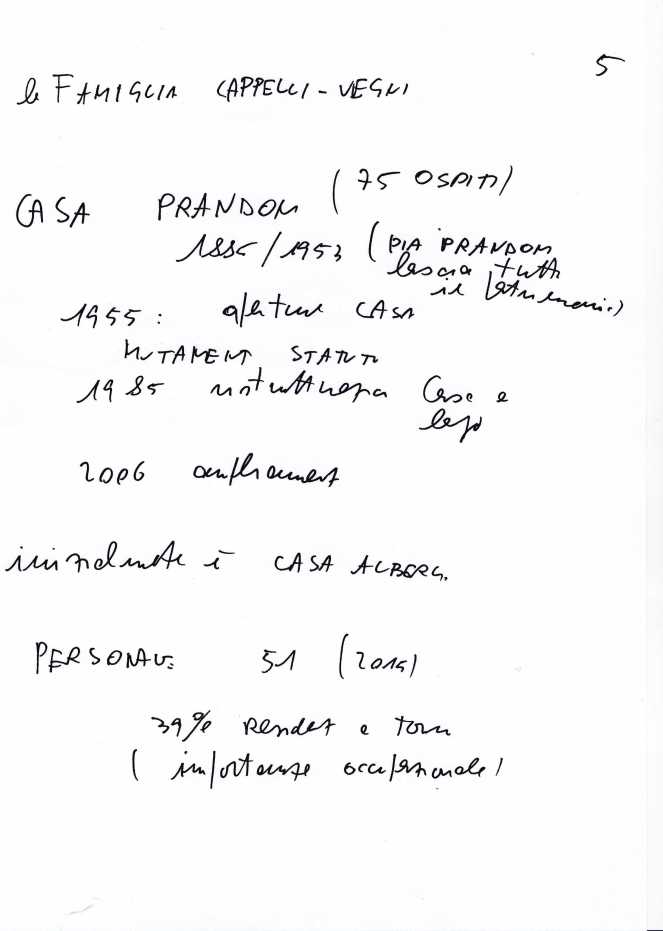 5
la FAMIGLIA CAPPELLI-VEGNI
CASA PRANDONI (75 OSPITI)
1886/1953 (PIA PRANDONI
lascia tutti
il
1955: apertura CASA
MUTAMENTI STATUTI
1985 ristrutturazione Casa e
2006 ampliamenti
inizialmente è CASA ALBERG.
PERSONALE: 51 (2015)
39% Rendesi e Torre
(importanza occupazionale)